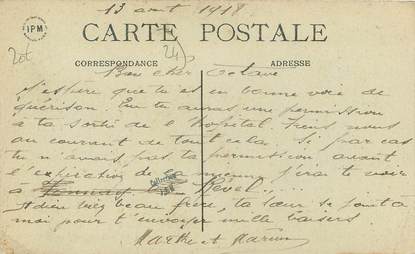 13 aout 1918
IPM
CARTE POSTALE
20t
24
CORRESPONDANCE
ADRESSE
Bien cher Octave
J'espère que tu es en bonne voie de
guérison. tu auras une permission
à ta sortie de l'hopital tiens nous
au courant de tout cela. Si par cas
tu n'avais pas ta permission avant
l'expiration de la mienne j'irai te voir
à Revel
Collection
IPM
Adieu beau frère, ta sœur se joint à
moi pour t'envoyer mille baisers
Marthe et Marius